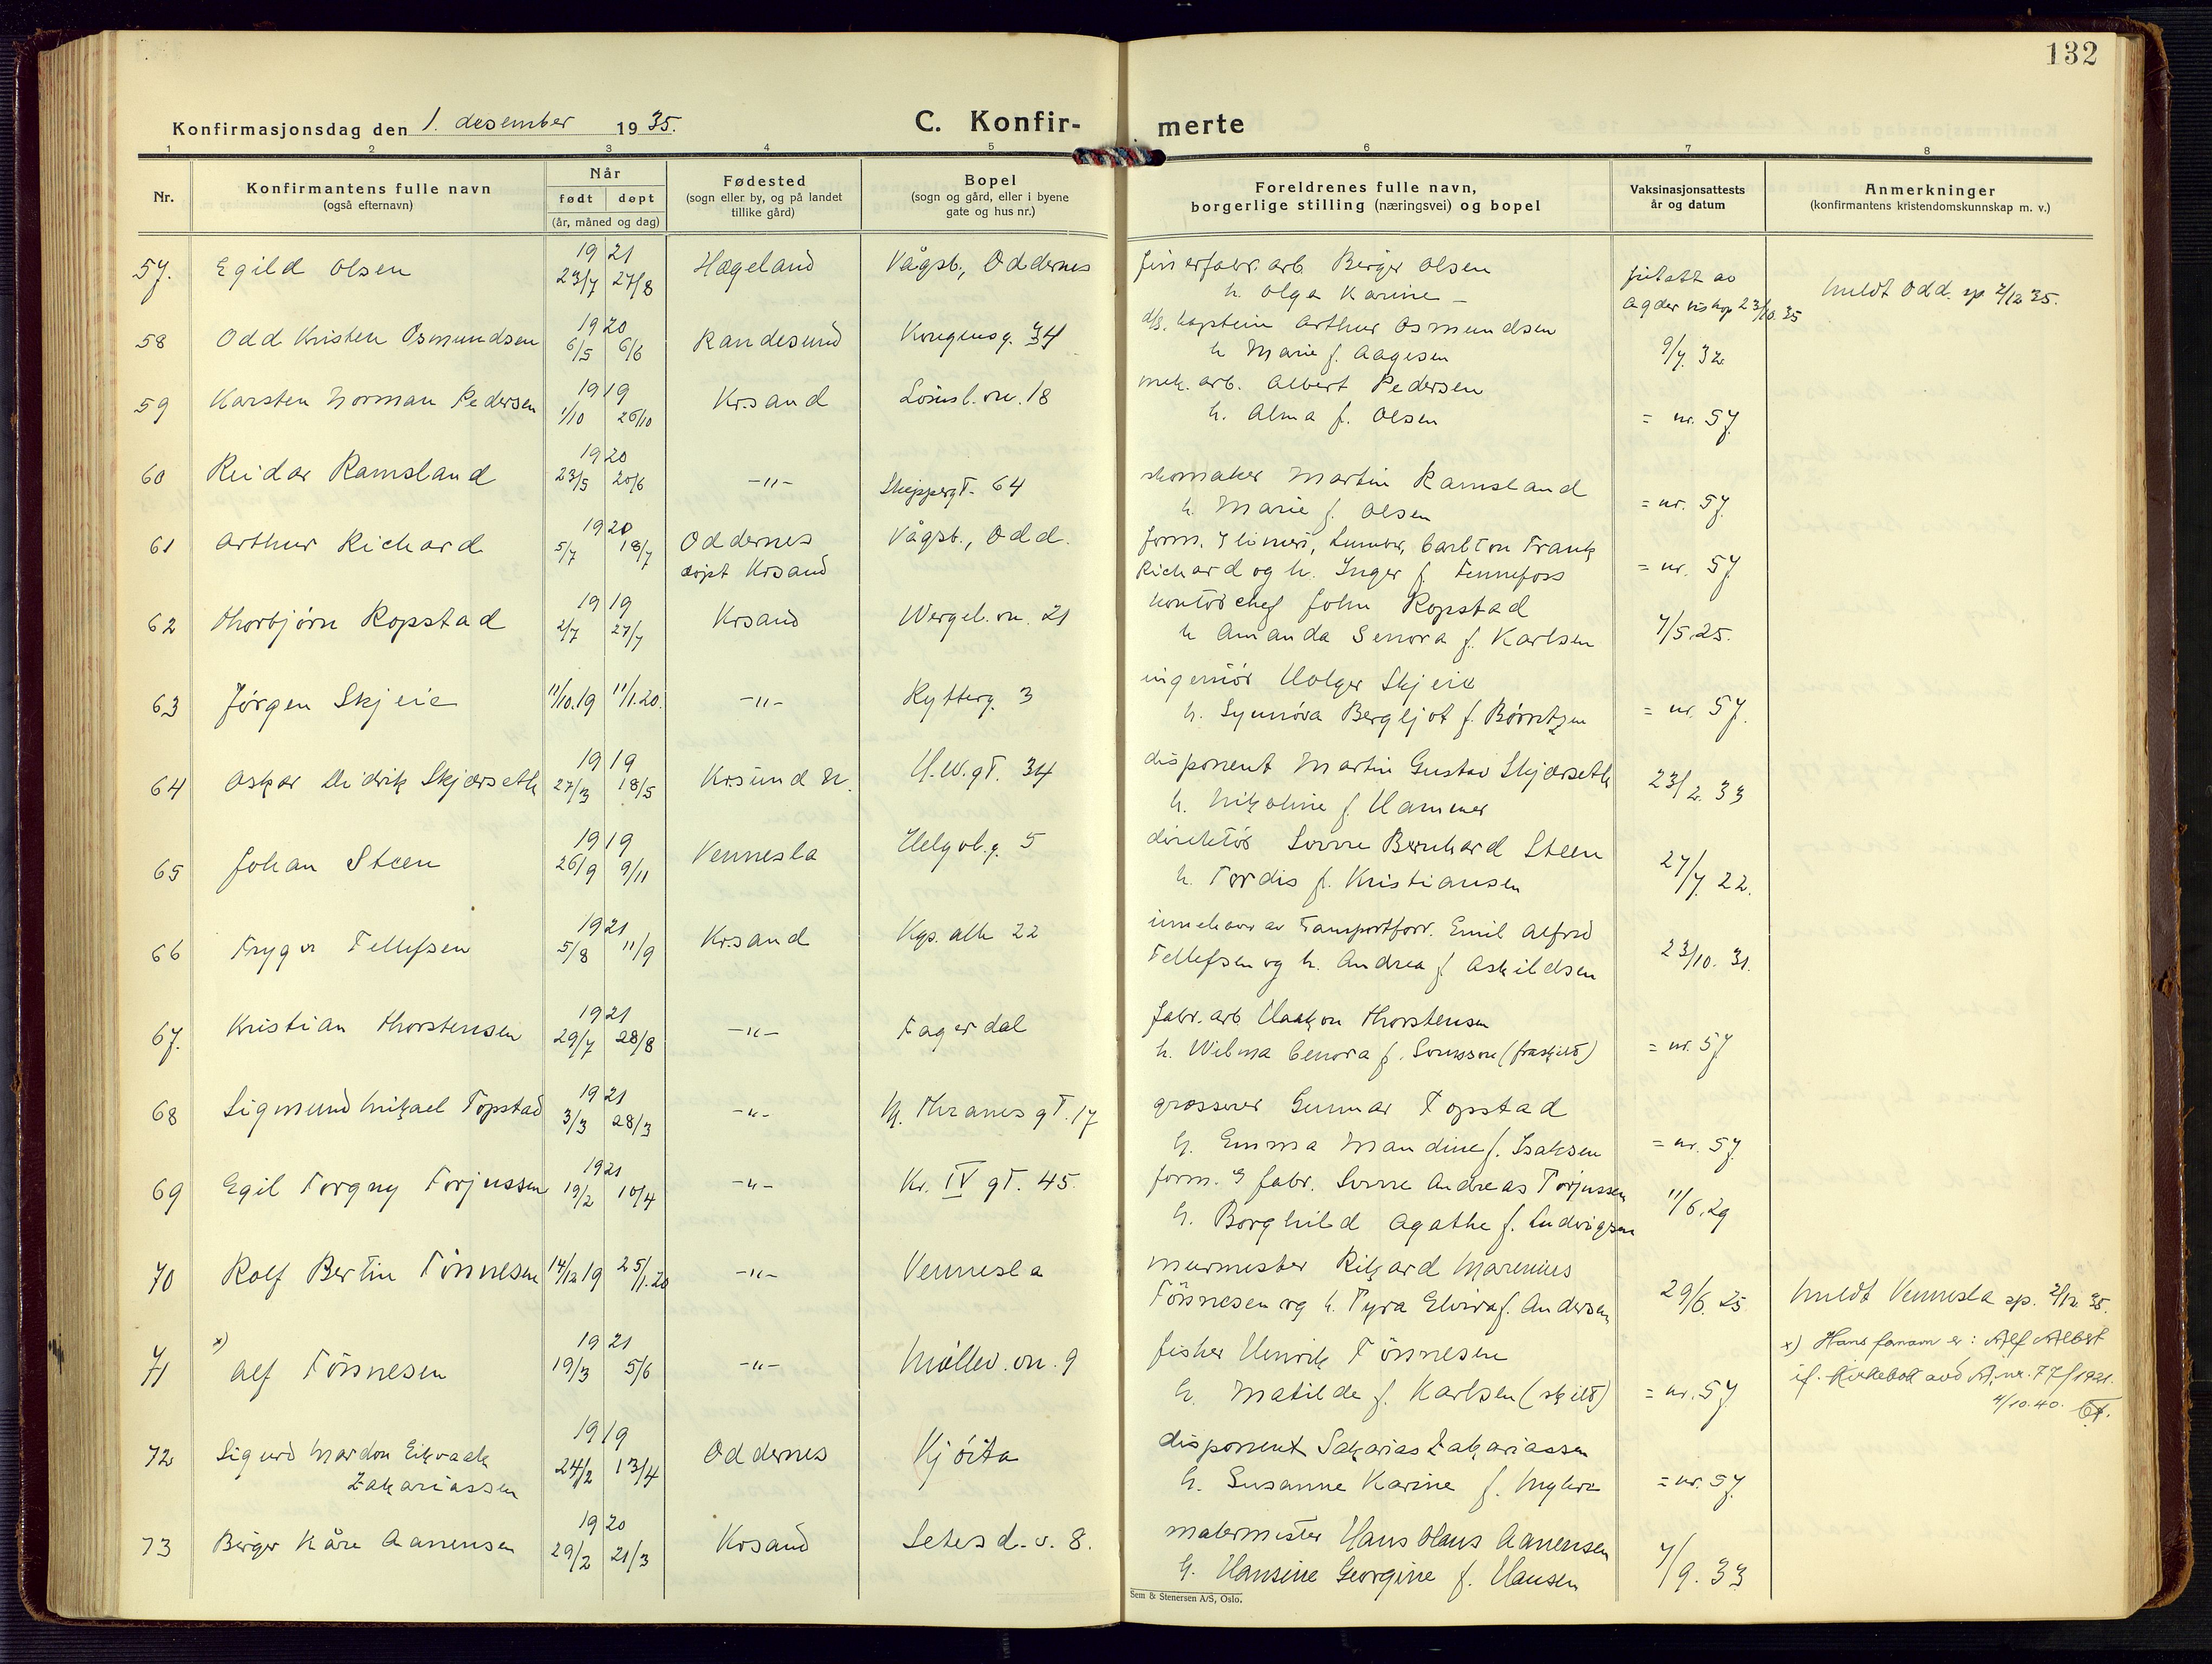 132
Konfirmasjonsdag den 1. desember 1935.
C. Konfir- merte
1 2 3 4 5 6 7 8
Nr.
Konfirmantens fulle navn
(også efternavn)
Når
født døpt
(år, måned og dag)
Fødested
(sogn eller by, og på landet
tillike gård)
Bopel
(sogn og gård, eller i byene
gate og hus nr.)
Foreldrenes fulle navn,
borgerlige stilling (næringsvei) og bopel
Vaksinasjonsattests
år og datum
Anmerkninger
(konfirmantens kristendomskunnskap m. v.)
57. Egild Olsen 1921 23/7 27/8 Hægeland Vågsb., Oddernes
finerfabr.arb Berger Olsen
h. Olga Karine —
fritatt av
Agder biskop 23/10.35
meldt Odd. sp 2/12 35.
58 Odd Kristen Osmundsen 1920 6/5 6/6 Randesund Kongensg. 34
d/s. kaptein Arthur Osmundsen
h Marie f. Aagesen
9/7 32
59 Karsten Norman Pedersen 1919 1/10 26/10 Kr.sand Louisl.vn. 18
mek. arb. Albert Pedersen
h. Alma f. Olsen
= nr. 57
60 Reidar Ramsland 1920 23/5 20/6 —"— Skippergt. 64
skomaker Martin Ramsland
h. Marie f. Olsen
= nr. 57
61 Arthur Richard 1920 5/7 18/7 Oddernes Vågsb., Odd.
døpt Krsand
Carlton Frank
Richard og h. Inger f. Tennefoss
= nr. 57
62 Thorbjørn Ropstad 1919 2/7 27/7 Krsand Wergel.vn. 21
kontorchef John Ropstad
h Amanda Senora f. Karlsen
7/5.25.
63 Jørgen Skjeie 11/10.19 11/1.20. —"— Rytterg. 3
ingeniør Holger Skjeie
h. Synnøva Bergljot f. Børretzen
= nr. 57.
64 Oskar Didrik Skjærseth 1919 27/3 18/5 Krsund N. H.W.gt. 34
disponent Martin Gustav Skjærseth
h. Nikoline f. Hammer
23/2. 33
65 Johan Steen 1919 26/9 9/11 Vennesla Helgol.g. 5
direktør Sverre Bernhard Steen
h. Tordis f. Kristiansen
27/7 22.
66 Trygve Tellefsen 1921 5/8 11/9 Kr.sand Kgs. alle 22
innehaver av Tansportforr. Emil Alfred
Tellefsen og h. Andrea f. Askildsen
23/10. 31.
67. Kristian Thorstensen 1921 29/7 28/8 —"— Fagerdal
fabr.arb Haakon Thorstensen
h. Wilma Cenora f. Svensson (fraskilt)
= nr. 57
68 Sigmund Mikael Topstad 1921 3/3 28/3 —"— M. Thranes gt. 17
grosserer Gunnar Topstad
h. Emma Mandine f. Isaksen
= nr. 57
69 Egil Torgny Torjussen 1921 19/2 10/4 —"— Kr. IV gt. 45
form. fabr. Sverre Andreas Torjussen
h. Borghild Agathe f. Ludvigsen
11/6.29
70 Rolf Bertin Tönnesen 14/12 19 25/1.20 —"— Vennesla
murmester Rikard Marenius
Tönnesen og h. Tyra Elvira f. Andersen
29/6. 25
meldt Vennesla sp. 2/12 35.
71 x) Alf Tönnesen 1921 19/3 5/6 —"— Møllev.vn. 9
fisker Henrik Tönnesen
h. Matilde f. Karlsen (skilt)
= nr. 57
x) Hans fornavn er: Alf Albert
if. Kirkebok avd A, nr. 77/1921.
4/10.40.
72 Sigurd Mardon Eikvaak 1919 24/2 13/4 Oddernes Kjöita
Zakariassen
disponent Sakarias Zakariassen
h. Susanne Karine f. Myhre
= nr. 57
73 Berger Kåre Aanensen 1920 29/2 21/3 Krsand Setesd.v. 8.
malermester Hans Olaus Aanensen
h. Hansine Georgine f. Hansen
7/9. 33
Sem & Stenersen A/S, Oslo.